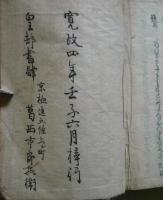 寛政四年壬子六月梓行
京極通五條上ル町
皇都書肆
葛西市郎兵衛